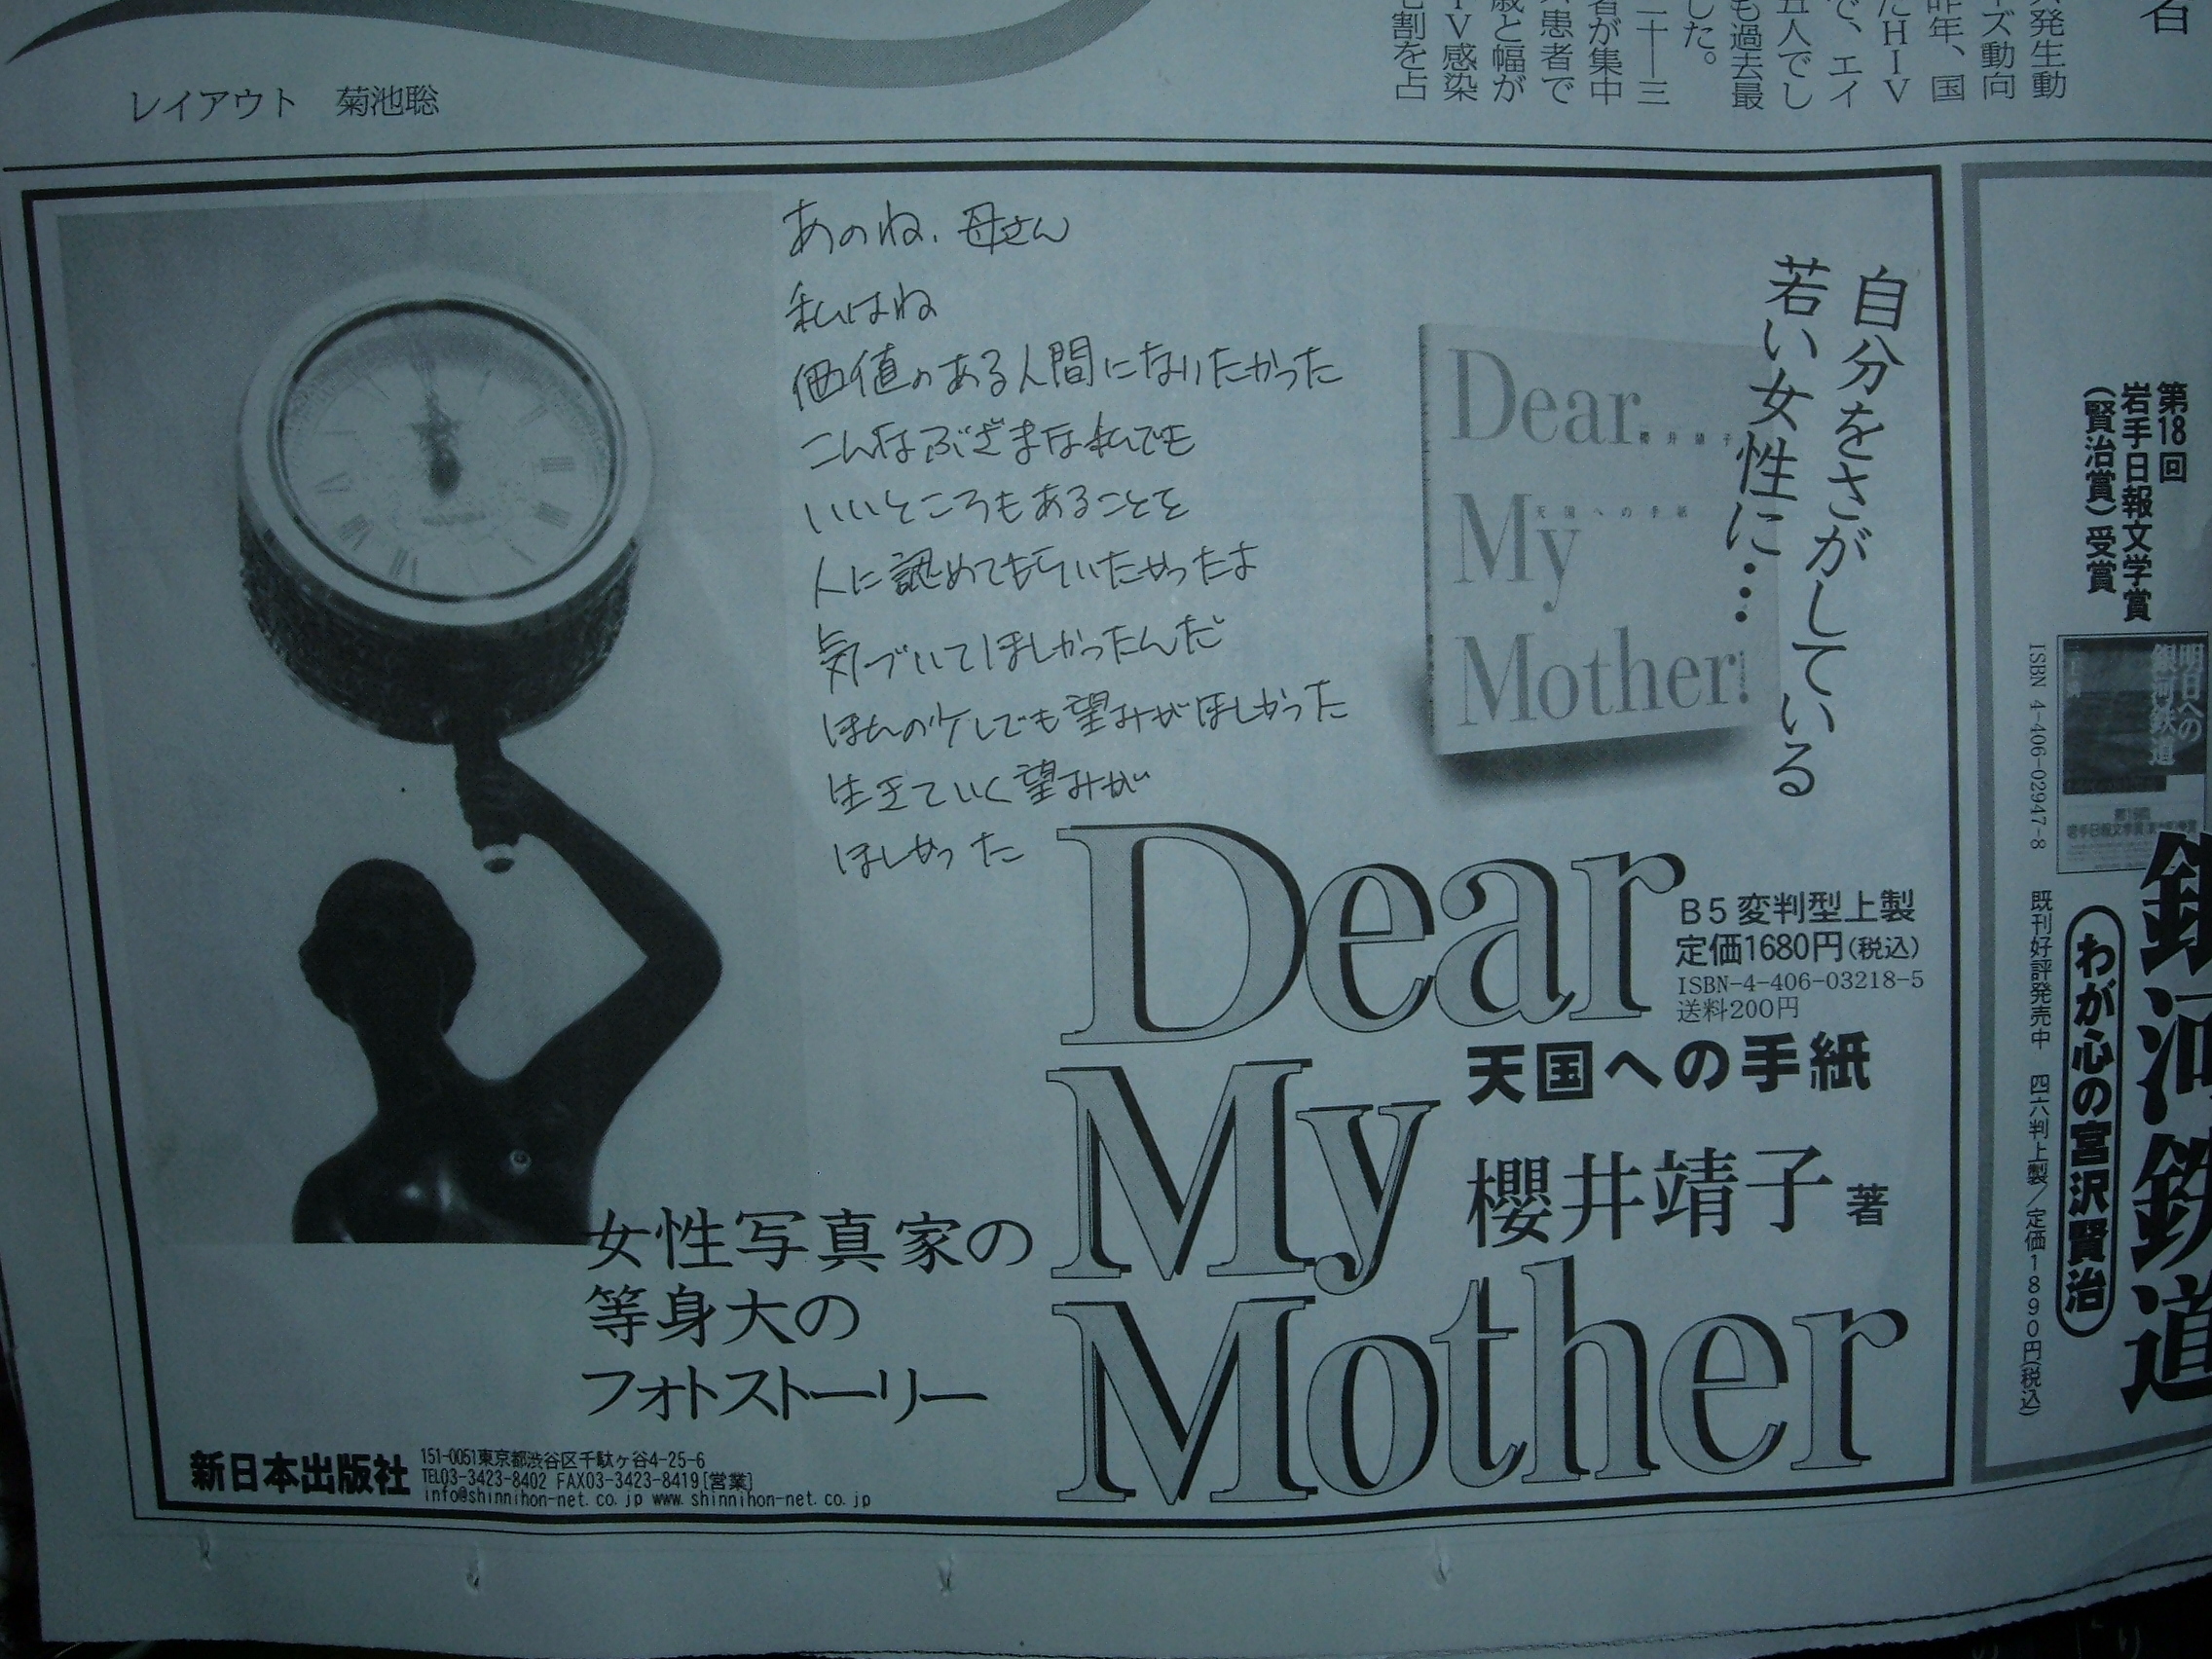 レイアウト　菊池聡
発生動
ズ動向
昨年、国
たHIV
で、エイ
五人でし
も過去最
した。
二十―三
者が集中
患者で
歳と幅が
IV感染
七割を占
あのね、母さん
私はね
価値のある人間になりたかった
こんなぶざまな私でも
いいところもあることを
人に認めてもらいたかったよ
気づいてほしかったんだ
ほんの少しでも望みがほしかった
生きていく望みが
ほしかった
自分をさがしている
若い女性に…
Dear...
櫻井靖子
My
天国への手紙
Mother!
Dear
B5変判型上製
定価1680円(税込)
ISBN-4-406-03218-5
送料200円
天国への手紙
My
櫻井靖子 著
Mother
女性写真家の
等身大の
フォトストーリー
新日本出版社
151-0051東京都渋谷区千駄ヶ谷4-25-6
TEL03-3423-8402 FAX03-3423-8419[営業]
info@shinnihon-net.co.jp www.shinnihon-net.co.jp
第18回
岩手日報文学賞
(賢治賞)受賞
明日への
銀河鉄道
銀河鉄道
わが心の宮沢賢治
ISBN 4-406-02947-8　既刊好評発売中　四六判上製/定価1890円(税込)